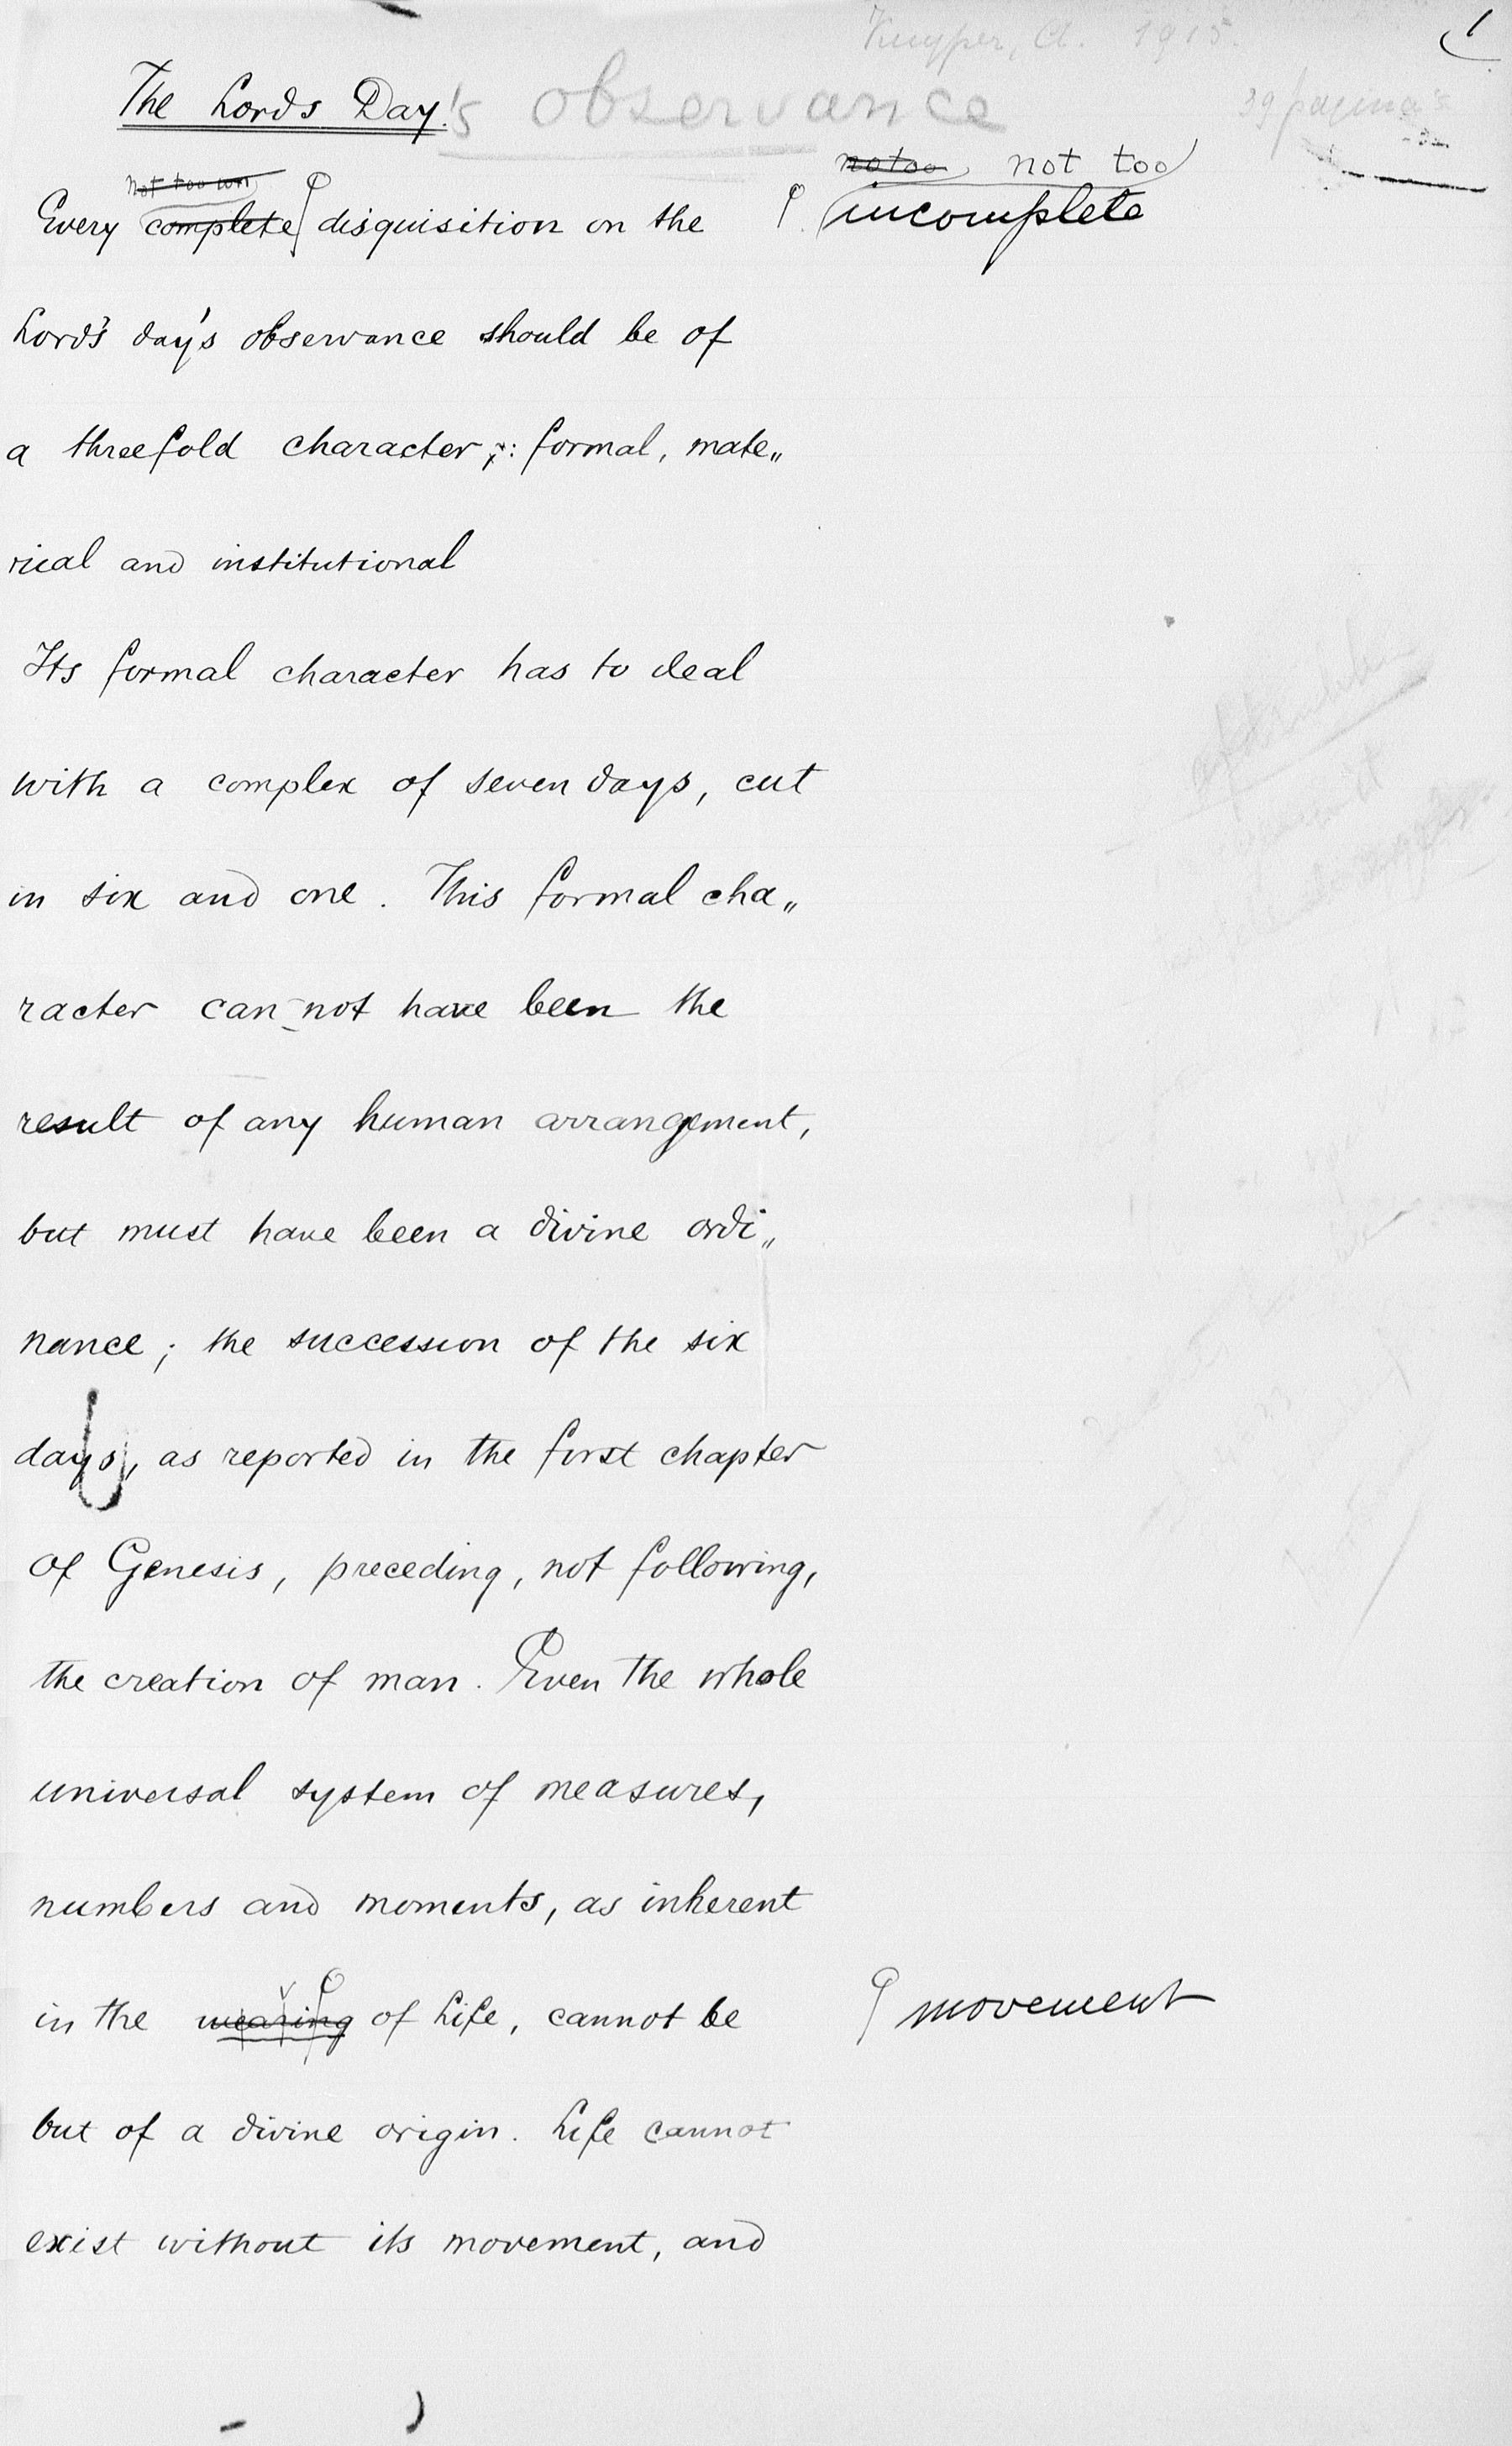 Kuyper, A. 1915.
1
39 pagina's
The Lords Day's observance
not too not too
Every complete disquisition on the incomplete
Lord's day's observance should be of
a threefold character: formal, mate„
rical and institutional
Its formal character has to deal
with a complex of seven days, cut
in six and one. This formal cha„
racter can not have been the
result of any human arrangement,
but must have been a divine ordi„
nance; the succession of the six
days, as reported in the first chapter
of Genesis, preceding, not following,
the creation of man. Even the whole
universal system of measures,
numbers and moments, as inherent
in the wearing of Life, cannot be movement
but of a divine origin. Life cannot
exist without its movement, and